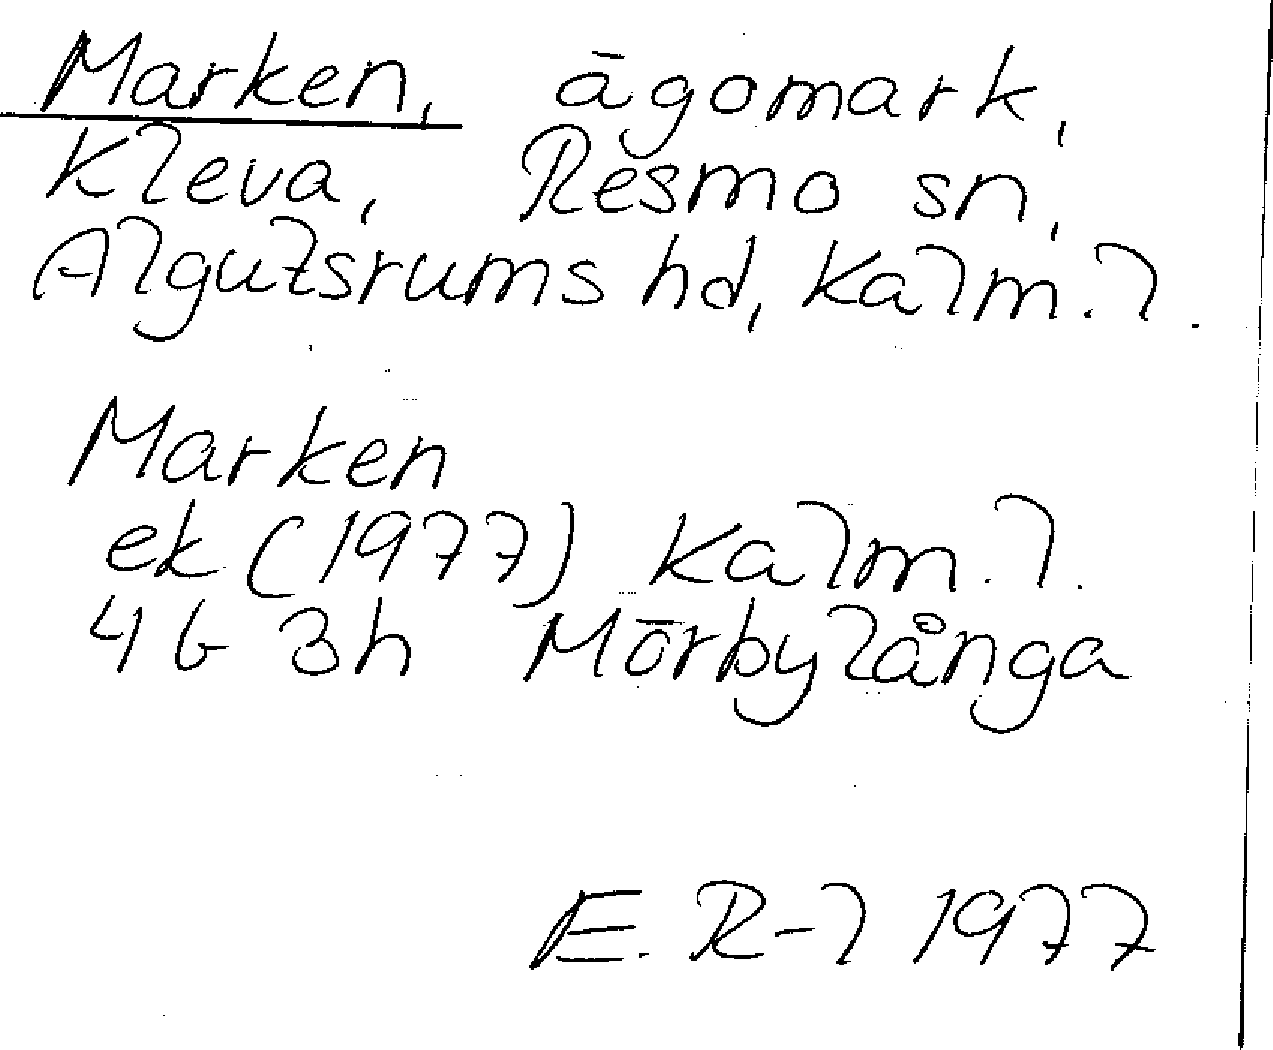 Marken, ägomark,
Kleva, Resmo sn,
Algutsrums hd, Kalm. l.
Marken
ek (1977) Kalm. l.
4 G 3h Mörbylånga
E. R-l 1977